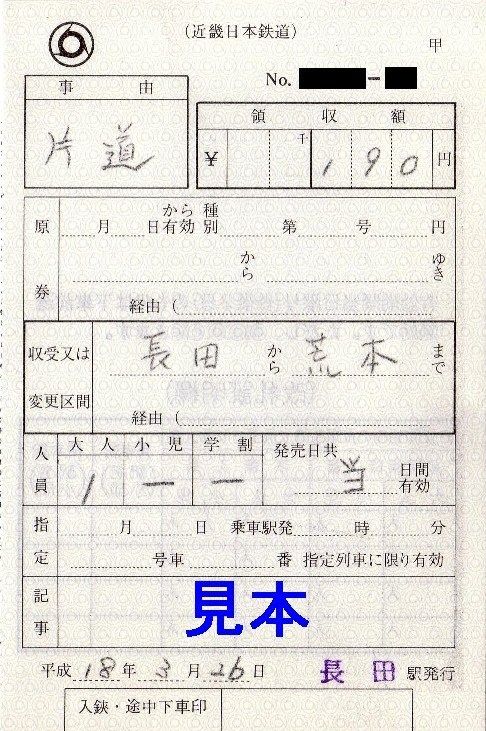 (近畿日本鉄道)
甲
No. -
事由
片道
領収額
千
¥ 190円
原券
月日有効から種別第号円
からゆき
経由(
収受又は変更区間
長田から荒本まで
経由(
人員
大人 小児 学割 発売日共
1 ー ー 当 日間有効
指定
月日 乗車駅発 時分
号車 番 指定列車に限り有効
記事
見本
平成18年3月26日 長田駅発行
入鋏・途中下車印